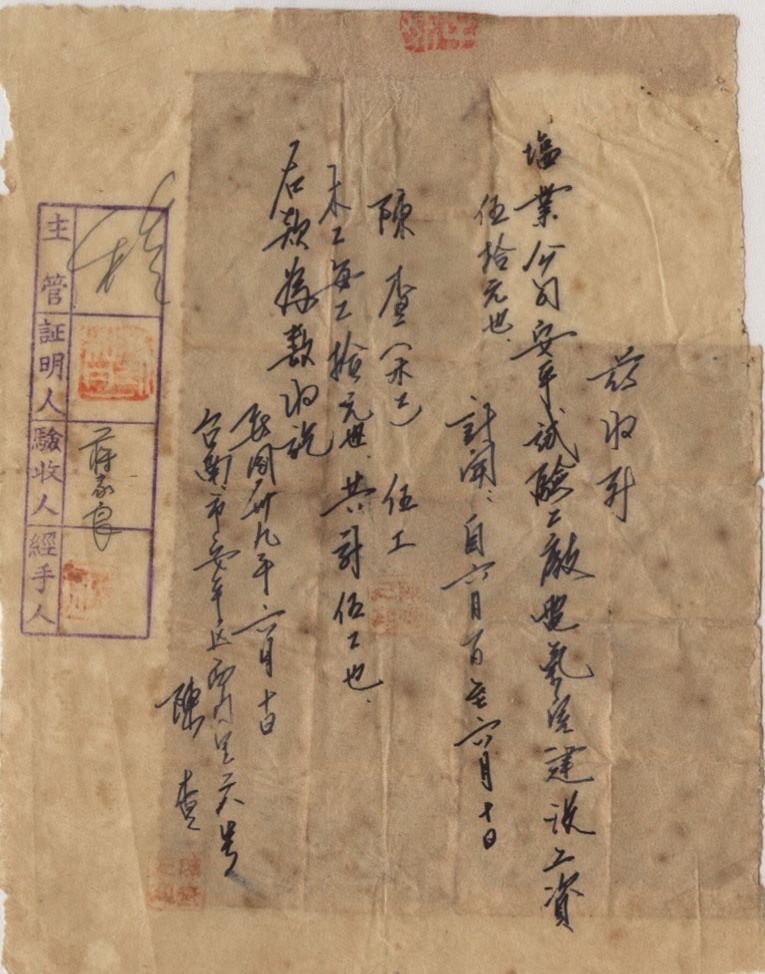 茲收到
塩業公司安平試驗工廠電氣室建設工資
伍拾元也.
計開：自六月六日至六月十日
陳查（木工） 伍工
木工每工拾元也. 共計伍工也.
右款爲數收訖
民国卅九年六月十日
台南市安平区西門里六号
陳查
主管
証明人
驗收人
蔣家良
經手人